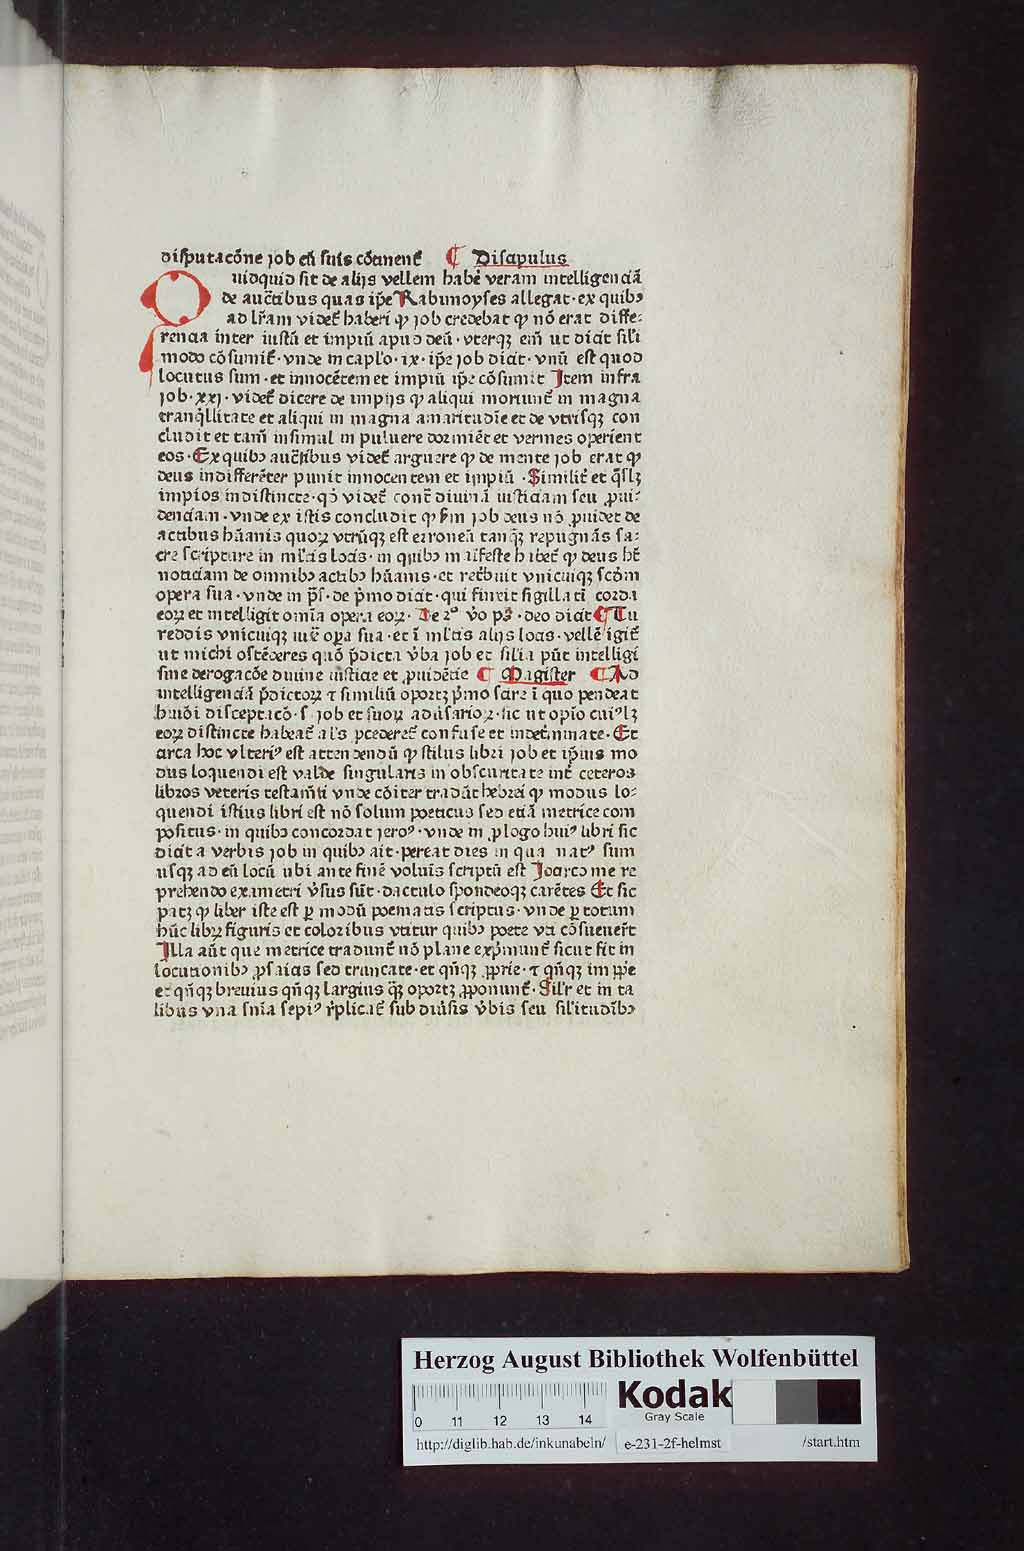 disputacōne job cū suis cōtinent᷑ ¶ Discipulus
Quidquid sit de alijs vellem habē veram intelligenciā
de auct̄ibus quas ip̄e Rabimoyses allegat · ex quibꝰ
ad lr̄am videt᷑ haberi ꝙ job credebat ꝙ nō erat diffe⸗
rencia inter iustū et impiū apud deū · vterqꝫ em̄ ut dicit sil'i
modo cōsumit᷑ · vnde in cap̄l'o · ix · ip̄e job dicit · vnū est quod
locutus sum · et innocētem et impiū ip̄e cōsumit Item infra
job · xxj · videt᷑ dicere de impijs ꝙ aliqui moriunt᷑ in magna
tranq̄llitate et aliqui in magna amaritudīe et de vtrisqꝫ con
cludit et tam̄ insimul in puluere dormiēt et vermes operient
eos · Ex quibꝰ auct̄ibus videt᷑ arguere ꝙ de mente job erat ꝙ
deus indifferēter punit innocentem et impiū · Similit᷑ et q̄sl'ꝫ
impios indistincte · qd̄ videt᷑ cont᷑ diuinā iusticiam seu ꝓui⸗
denciam · vnde ex istis concludit ꝙ s̄m job deus nō ꝓuidet de
actibus hūanis quoꝝ vtrūqꝫ est erroneū tanq̄ꝫ repugnās sa⸗
cre scripture in ml'tis locis · in quibꝰ māifeste hibet᷑ ꝙ deus hꝫ
noticiam de omnibꝰ actibꝰ hūanis · et ret̄buit vnicuiqꝫ scd̄m
opera sua · vnde in p̄s · de p̄mo dicit · qui finxit sigillatī corda
eoꝝ et intelligit omīa opera eoꝝ · De 2º v̄o ps̄ · deo dicit ¶ Tu
reddis vnicuiqꝫ iux̄ oꝑa sua · et ī ml'tis alijs locis · vellē igit᷑
ut michi ostēderes quō p̄dicta v̄ba job et sil'ia pn̄t intelligi
sine derogacōe diuine iusticie et ꝓuidēcie ¶ Magister ¶ Ad
intelligenciā p̄dictoꝝ ⁊ similiū oportꝫ p̄mo scire ī quo pendeat
huiōi disceptacō · s · job et suoꝝ adūsarioꝝ · sic ut opīo cuiꝰlꝫ
eoꝝ distincte habeat᷑ al's pcederet᷑ confuse et indet̄minate · Et
circa hoc vlteriꝰ est attendendū ꝙ stilus libri job et ip̄ius mo
dus loquendi est valde singularis in obscuritate int᷑ ceteros
libros veteris testam̄ti vnde cōiter tradūt hebrei ꝙ modus lo⸗
quendi istius libri est nō solum poeticus sed etiā metrice com
positus · in quibꝰ concordat jeroꝰ · vnde in ꝓlogo huiꝰ libri sic
dicit a verbis job in quibꝰ ait · pereat dies in qua natꝰ sum
usqꝫ ad eū locū ubi ante finē voluīs scriptū est Idcirco me re
prehendo exametri v̄sus sūt · dactulo spondeoqꝫ carētes Et sic
patꝫ ꝙ liber iste est ꝑ modū poematis scriptus · vnde ꝑ totum
hūc libꝝ figuris et coloribus vtitur quibꝰ poete vti cōsueuer̄t
Illa aūt que metrice tradunt᷑ nō plane exp̄munt᷑ sicut fit in
locutionibꝰ ꝓsaicis sed truncate · et qn̄qꝫ ꝓprie · ⁊ qn̄qꝫ imꝓp̄e
et qn̄qꝫ breuius qn̄qꝫ largius q̄ꝫ oportꝫ ꝓponunt᷑ · Sil'r et in ta
libus vna sn̄ia sepiꝰ r̄plicat᷑ sub diūsis v̄bis seu sil'itudībꝰ
Herzog August Bibliothek Wolfenbüttel
0 11 12 13 14
Kodak
Gray Scale
http://diglib.hab.de/inkunabeln/ e-231-2f-helmst /start.htm